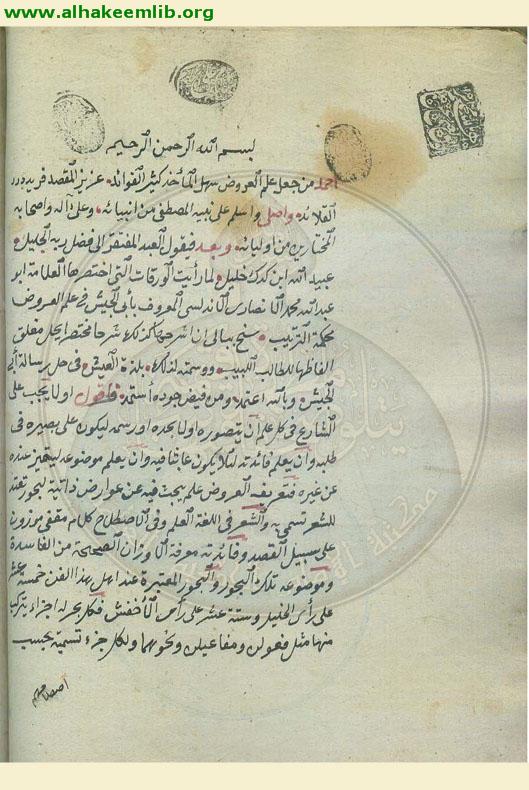 www.alhakeemlib.org
بسم الله الرحمن الرحيم
احمد من جعل علم العروض سهل المأخذ كثير الفوائد عزيز المقصد فريد درر
القلائد واصلى واسلم على نبيه المصطفى من انبيائه وعلى اله واصحابه
المختارين من اوليائه وبعد فيقول العبد المفتقر الى فضل ربه الجليل
عبيد الله ابن كدك خليل لما رأيت الورقات التى اختصرها العلامة ابو
عبد الله محمد الانصارى الاندلسى المعروف بابى الجيش فى علم العروض
محكمة الترتيب سنح ببالى ان اشرحها كذلك شرحا مختصرا يحل مغلق
الفاظها للطالب اللبيب ووسمته لذلك بلذة العيش فى حل رسالة أبى
الجيش وبالله اعتمد ومن فيض جوده أستمد فاقول اولا يجب على
الشارع فى كل علم أن يتصوره اولا بحده او رسمه ليكون على بصيرة فى
طلبه وان يعلم فائدته لئلا يكون عابثا فيه وان يعلم موضوعه ليتميز عنده
عن غيره فتعريف العروض علم يبحث فيه عن عوارض ذاتية لبحور تعقد
للشعر تسمى به والشعر فى اللغة العلم وفى الاصطلاح كلام مقفى موزون
على سبيل القصد وفائدته معرفة الاوزان الصحيحة من الفاسدة
وموضوعه تلك البحور والبحور المعتبرة عند اهل هذا الفن خمسة عشر
على رأى الخليل وستة عشر على رأى الأخفش فكل بحر له اجزاء يتركب
منها مثل فعولن ومفاعيلن ونحوهما ولكل جزء تسمية بحسب